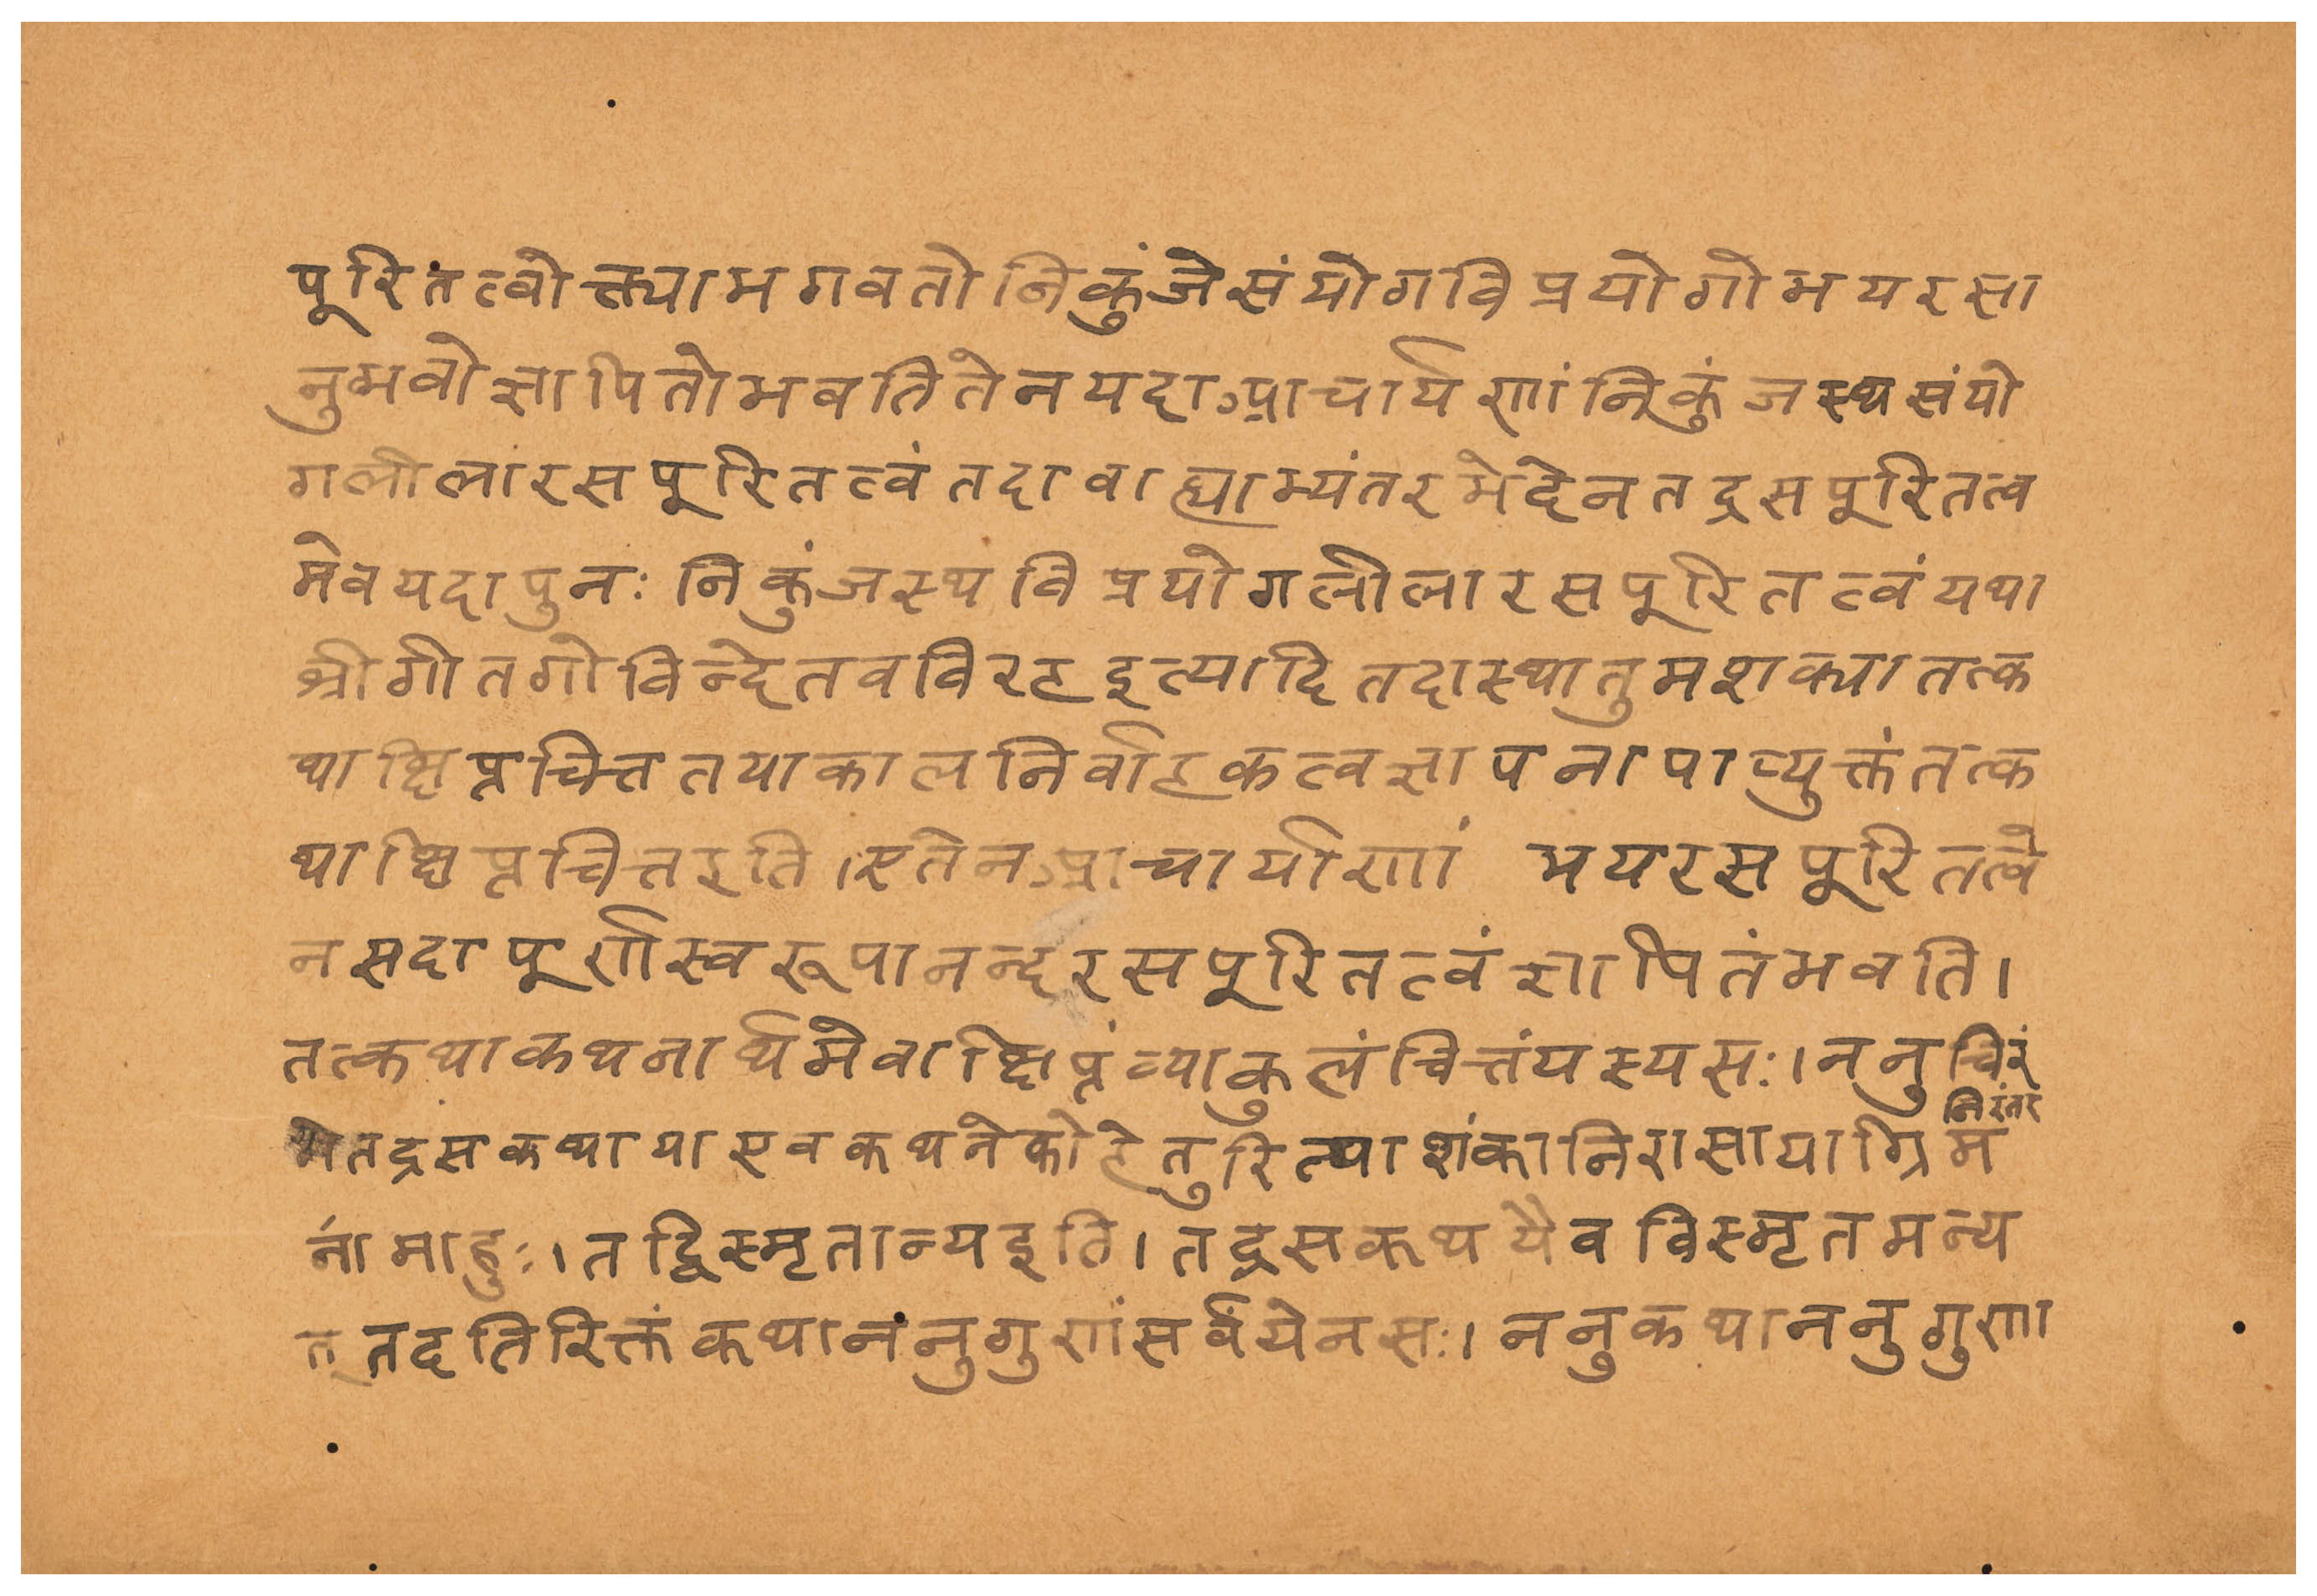 पूरितत्वोक्त्याभगवतोनिकुंजेसंयोगविप्रयोगोभयरसा
नुभवोज्ञापितोभवतितेनयदाआचार्यणांनिकुंजस्थसंयो
गलीलारसपूरितत्वंतदावाह्याभ्यंतरभेदेनतद्रसपूरितत्व
मेवयदापुनः निकुंजस्थविप्रयोगलीलारसपूरितत्वंयथा
श्रीगीतगोविन्देतवविरहइत्यादितदास्थातुमशक्यातत्क
थाक्षिप्तचित्ततयाकालनिर्वाहकत्वज्ञापनापाव्युक्तंतत्क
थाक्षिप्तचित्तइति।एतेनआचार्याणां भयरसपूरितत्वे
नसदापूर्णस्वरूपानन्दरसपूरितत्वंज्ञापितंभवति।
तत्कथाकथनार्थमेवाक्षिप्तंव्याकुलंचित्तंयस्यसः।ननुचिरं
निरंतर
मेतद्रसकथायाएवकथनेकोहेतुरित्याशंकानिरासायाग्रिमं
र्नामाहुः।तद्विस्मृतान्यइति।तद्रसकथयैवविस्मृतमन्य
त्तदतिरिक्तंकथानंनुगुणंसर्वंयेनसः।ननुकथाननुगुणा